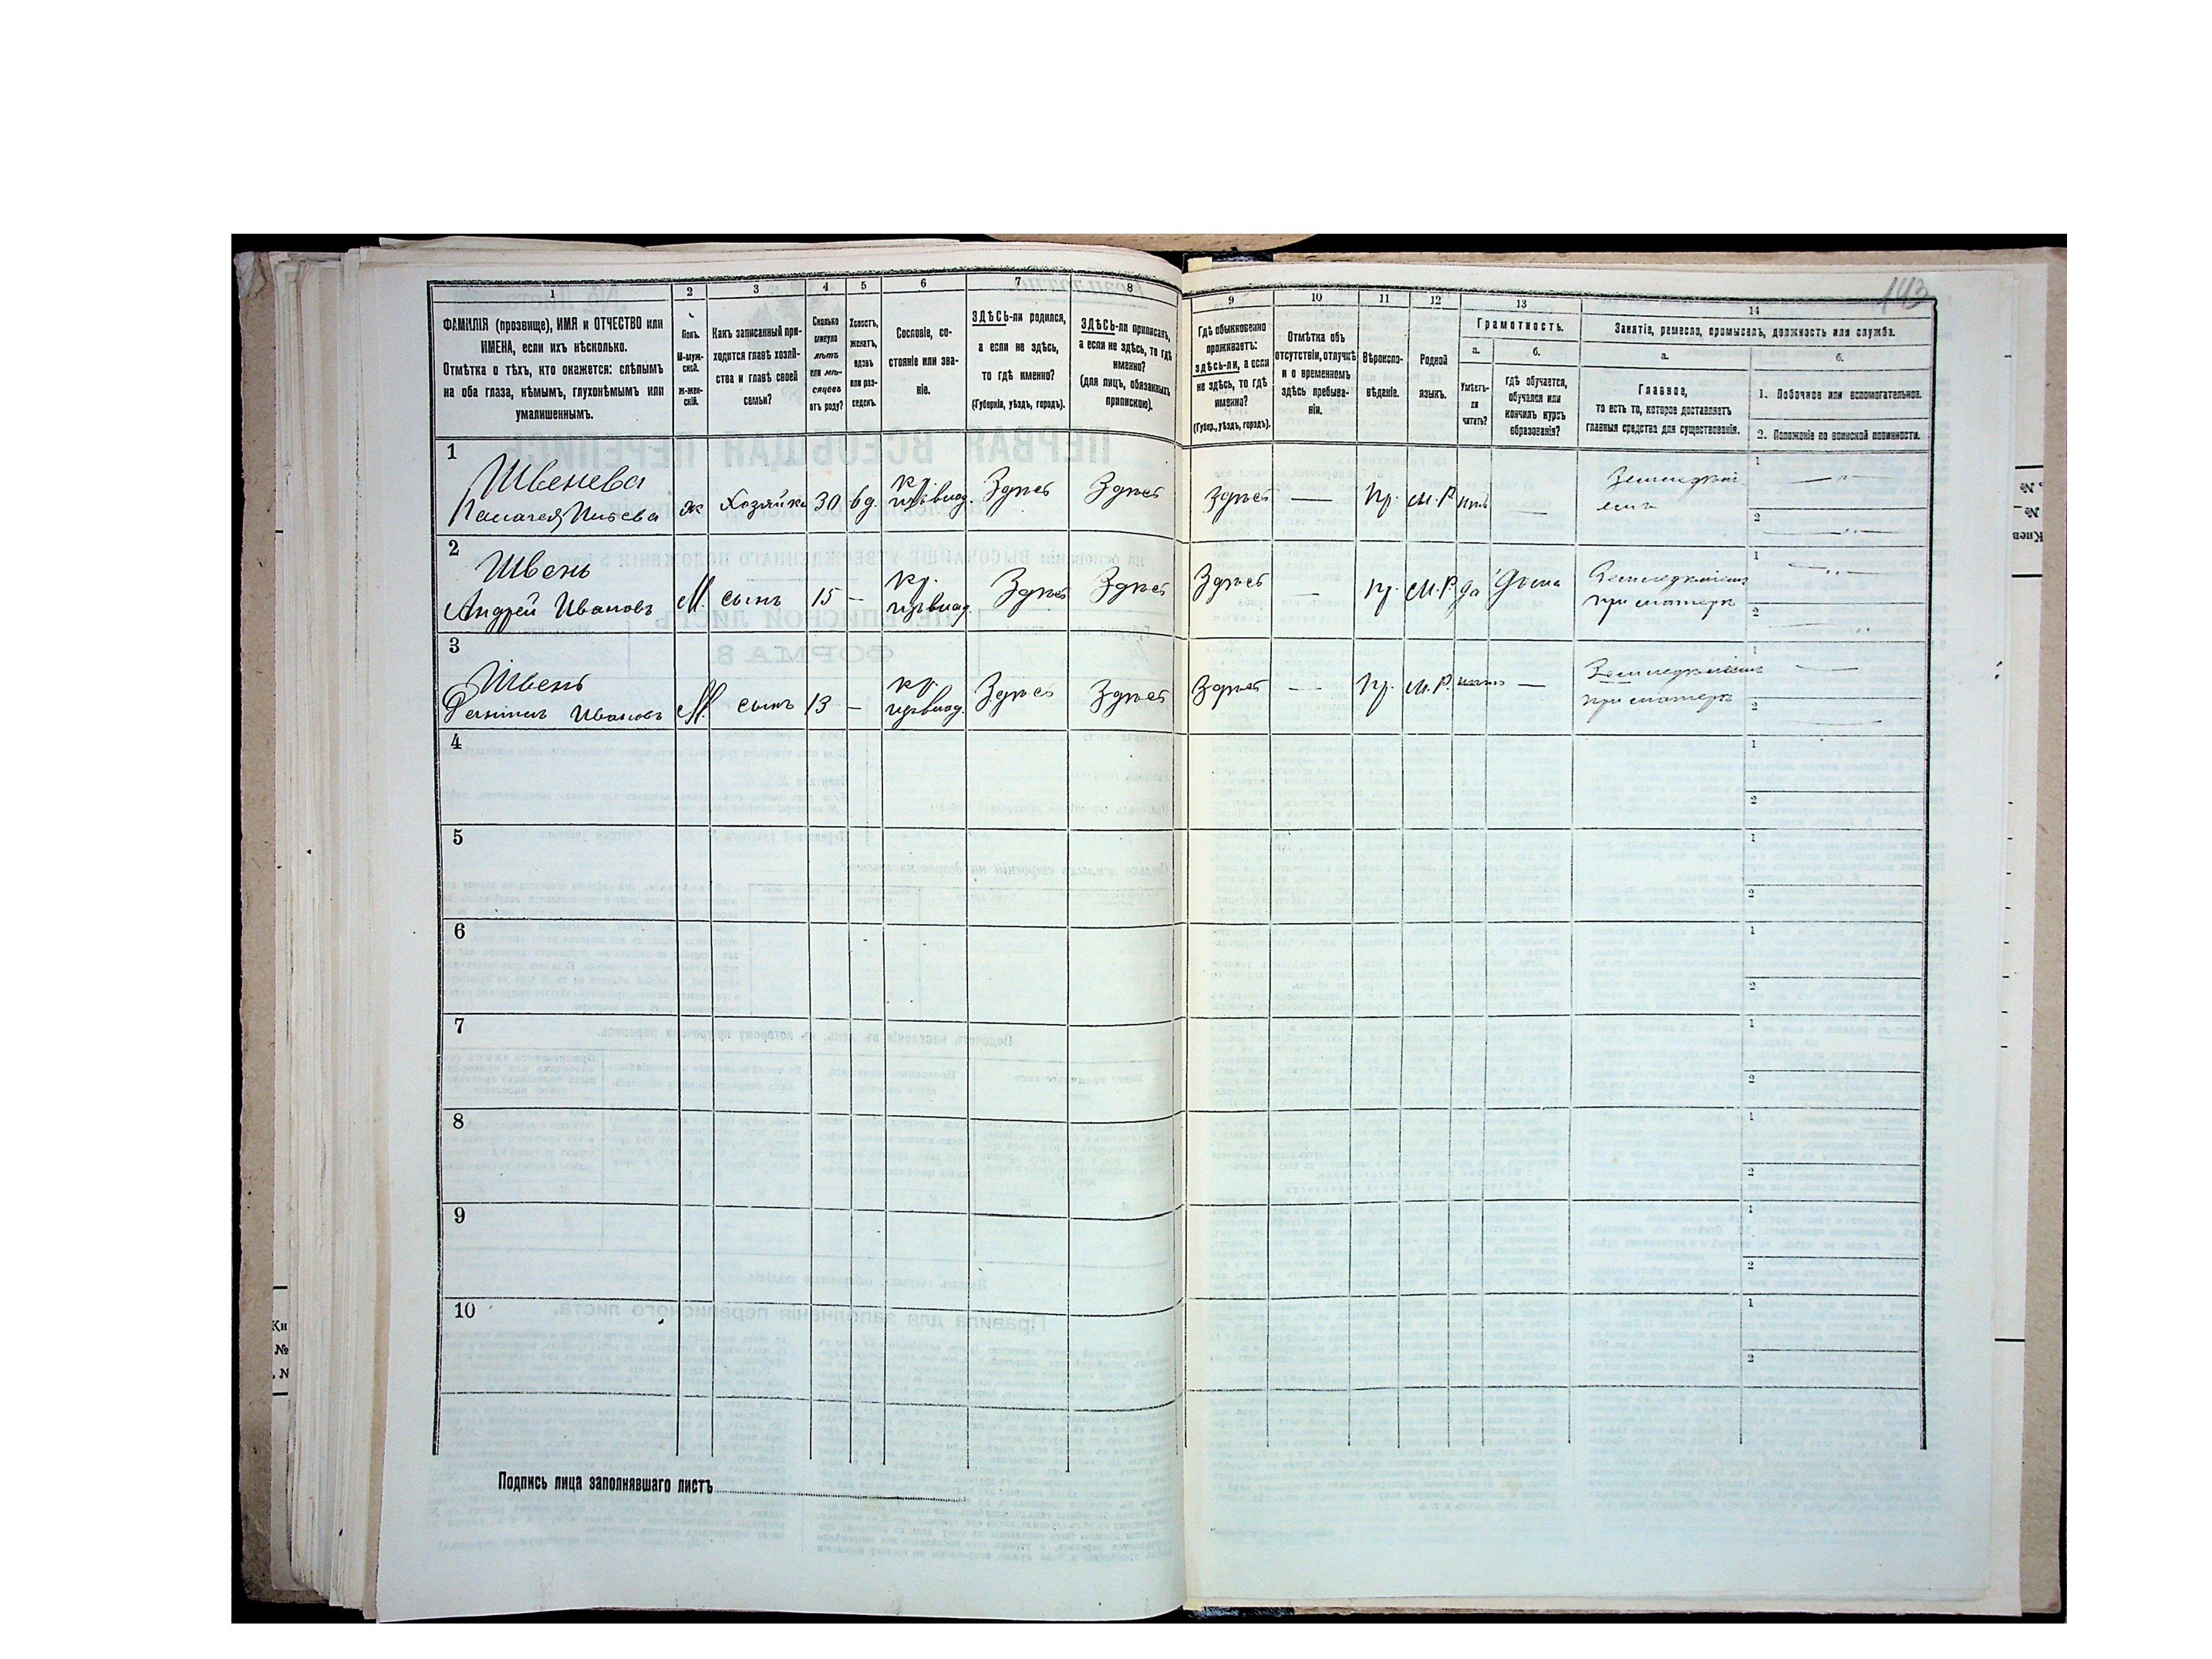 143
1
2
3
4
5
6
7
8
ФАМИЛІЯ (прозвище), ИМЯ и ОТЧЕСТВО или
ИМЕНА, если ихъ нѣсколько.
Отмѣтка о тѣхъ, кто окажется: слѣпымъ
на оба глаза, нѣмымъ, глухонѣмымъ или
умалишеннымъ.
Полъ.
М-муж-
ской.
Ж-жен-
скій.
Какъ записанный при-
ходится главѣ хозяй-
ства и главѣ своей
семьи?
Сколько
минуло
лѣтъ
или мѣ-
сяцевъ
отъ роду?
Холостъ,
женатъ,
вдовъ
или раз-
веденъ.
Сословіе, со-
стояніе или зва-
ніе.
ЗДѢСЬ-ли родился,
а если не здѣсь,
то гдѣ именно?
(Губернія, уѣздъ, городъ).
ЗДѢСЬ-ли приписанъ,
а если не здѣсь, то гдѣ
именно?
(для лицъ, обязанныхъ
припискою).
9
10
11
12
13
14
Гдѣ обыкновенно
проживаетъ:
здѣсь-ли, а если
не здѣсь, то гдѣ
именно?
(Губер., уѣздъ, городъ).
Отмѣтка объ
отсутствіи, отлучкѣ
и о временномъ
здѣсь пребыва-
ніи.
Вѣроиспо-
вѣданіе.
Родной
языкъ.
Грамотность.
а.
б.
Умѣетъ-
ли
читать?
гдѣ обучается,
обучался или
кончилъ курсъ
образованія?
Занятіе, ремесло, промыселъ, должность или служба.
а.
б.
Главное,
то есть то, которое доставляетъ
главныя средства для существованія.
1. Побочное или вспомогательное.
2. Положеніе по воинской повинности.
1
Швенева
ж Хозяйка 30 вд. кр. Здѣсь Здѣсь Здѣсь — пр. м.р. нѣтъ —
1
2
2
Швень
Андрей Ивановъ М. сынъ 15 — кр. Здѣсь Здѣсь Здѣсь — пр. м.р. да Дома
при матери
1
2
3
Швень
Ивановъ М. сынъ 13 — кр. Здѣсь Здѣсь Здѣсь — пр. м.р. —
при матери
1
2
4
1
2
5
1
2
6
1
2
7
1
2
8
1
2
9
1
2
10
1
2
Подпись лица заполнявшаго листъ